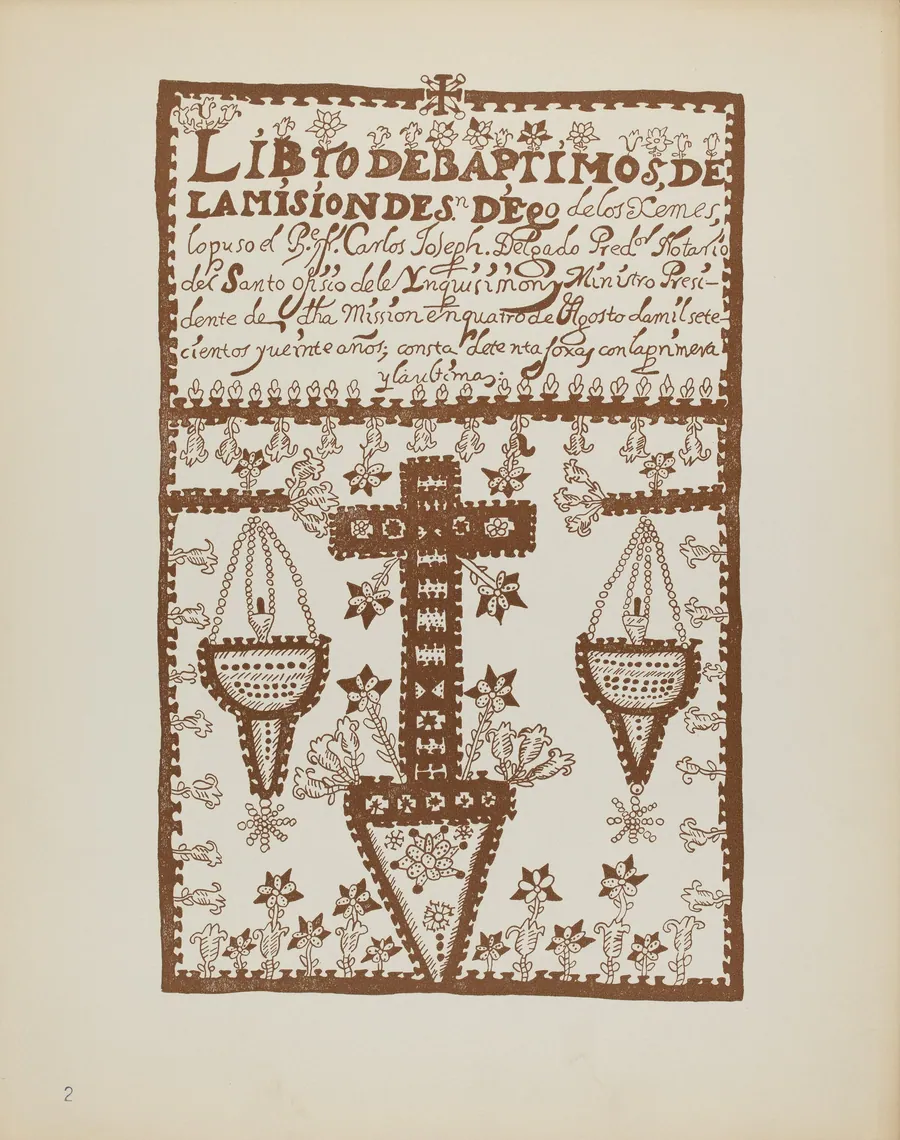 LIBro DE BAPTIMOS, DE
LA MISION DE Sn DIEgo de los Xemes,
lo puso el Carlos Joseph. Delgado Predor Notario
del Santo ofisio dele Ynquisision, Ministro Presi-
dente de dha Mission en quatro de Agosto da mil sete-
cientos y ueinte años; consta de te nta foxas con la primera
y la ultima;
2